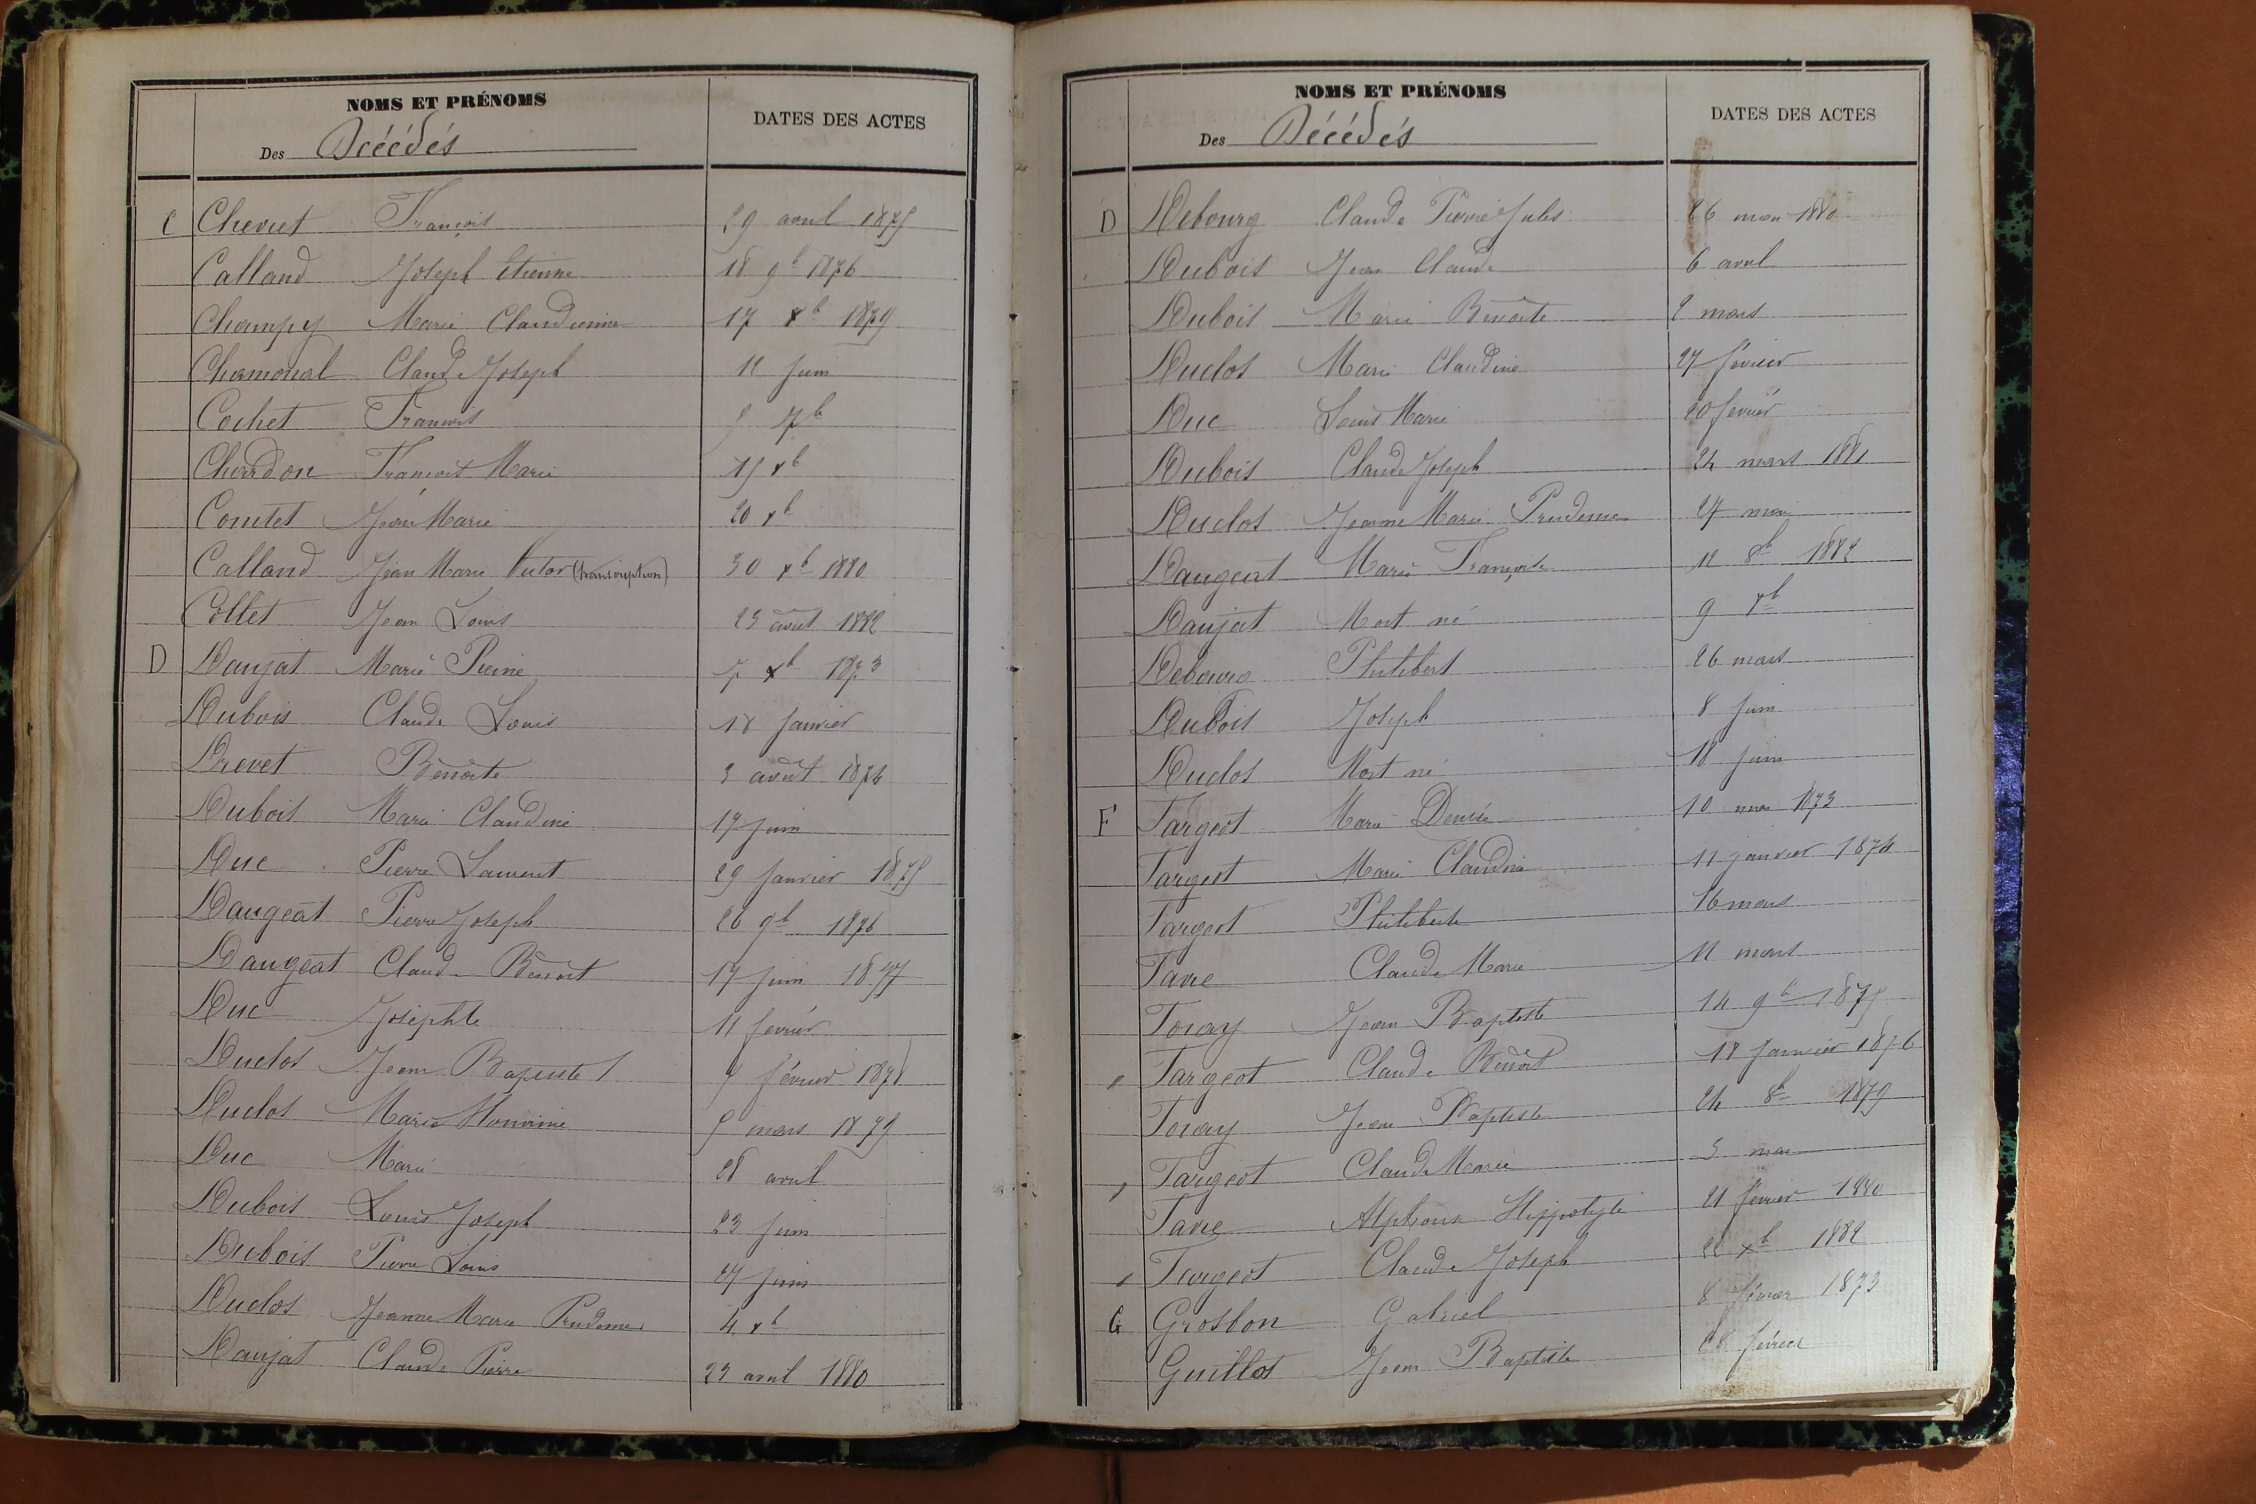 NOMS ET PRÉNOMS
DATES DES ACTES
Des Décédés
C Chevret François 29 avril 1875
Calland Joseph Etienne 18 9b 1876
Champy Marie Claudine 17 xb 1879
Chamonal Claude Joseph 11 juin
Cochet François 5 7b
Chardon François Marie 15 xb
Comtet Jean Marie 20 xb
Calland Jean Marie Victor (transcription) 30 xb 1880
Collet Jean Louis 23 août 1882
D Daujat Marie Pierre 7 xb 1873
Dubois Claude Louis 18 janvier
Drevet Benoite 3 août 1876
Dubois Marie Claudine 17 juin
Duc Pierre Laurent 29 janvier 1875
Daugeat Pierre Joseph 26 9b 1876
Daugeat Claude Benoit 17 juin 1877
Duc Josephte 11 février
Duclos Jean Baptiste 7 février 1878
Duclos Marie Honorine 5 mars 1879
Duc Marie 28 avril
Dubois Louis Joseph 23 juin
Dubois Pierre Louis 27 juin
Duclos Jeanne Marie Prudence 4 xb
Daujat Claude Pierre 23 avril 1880
NOMS ET PRÉNOMS
DATES DES ACTES
Des Décédés
D Debourg Claude Pierre Jules 26 mai 1880
Dubois Jean Claude 6 avril
Dubois Marie Benoite 2 mars
Duclos Marie Claudine 27 février
Duc Louis Marie 20 février
Dubois Claude Joseph 24 mars 1881
Duclos Jeanne Marie Prudence 27 mai
Daugeat Marie Françoise 11 8b 1882
Daujat Mort né 9 7b
Debourg Philibert 26 mars
Dubois Joseph 8 juin
Duclos Mort né 18 juin
F Fargeot Marie Denise 10 mai 1873
Fargeot Marie Claudine 11 janvier 1874
Fargeot Philiberte 16 mars
Favre Claude Marie 11 mars
Foray Jean Baptiste 14 9b 1875
Fargeot Claude Benoit 18 janvier 1876
Foray Jean Baptiste 24 8b 1879
Fargeot Claude Marie 3 mai
Favre Alphonse Hippolyte 21 février 1880
Fargeot Claude Joseph 22 xb 1882
G Grosbon Gabriel 8 février 1873
Guillot Jean Baptiste 28 février